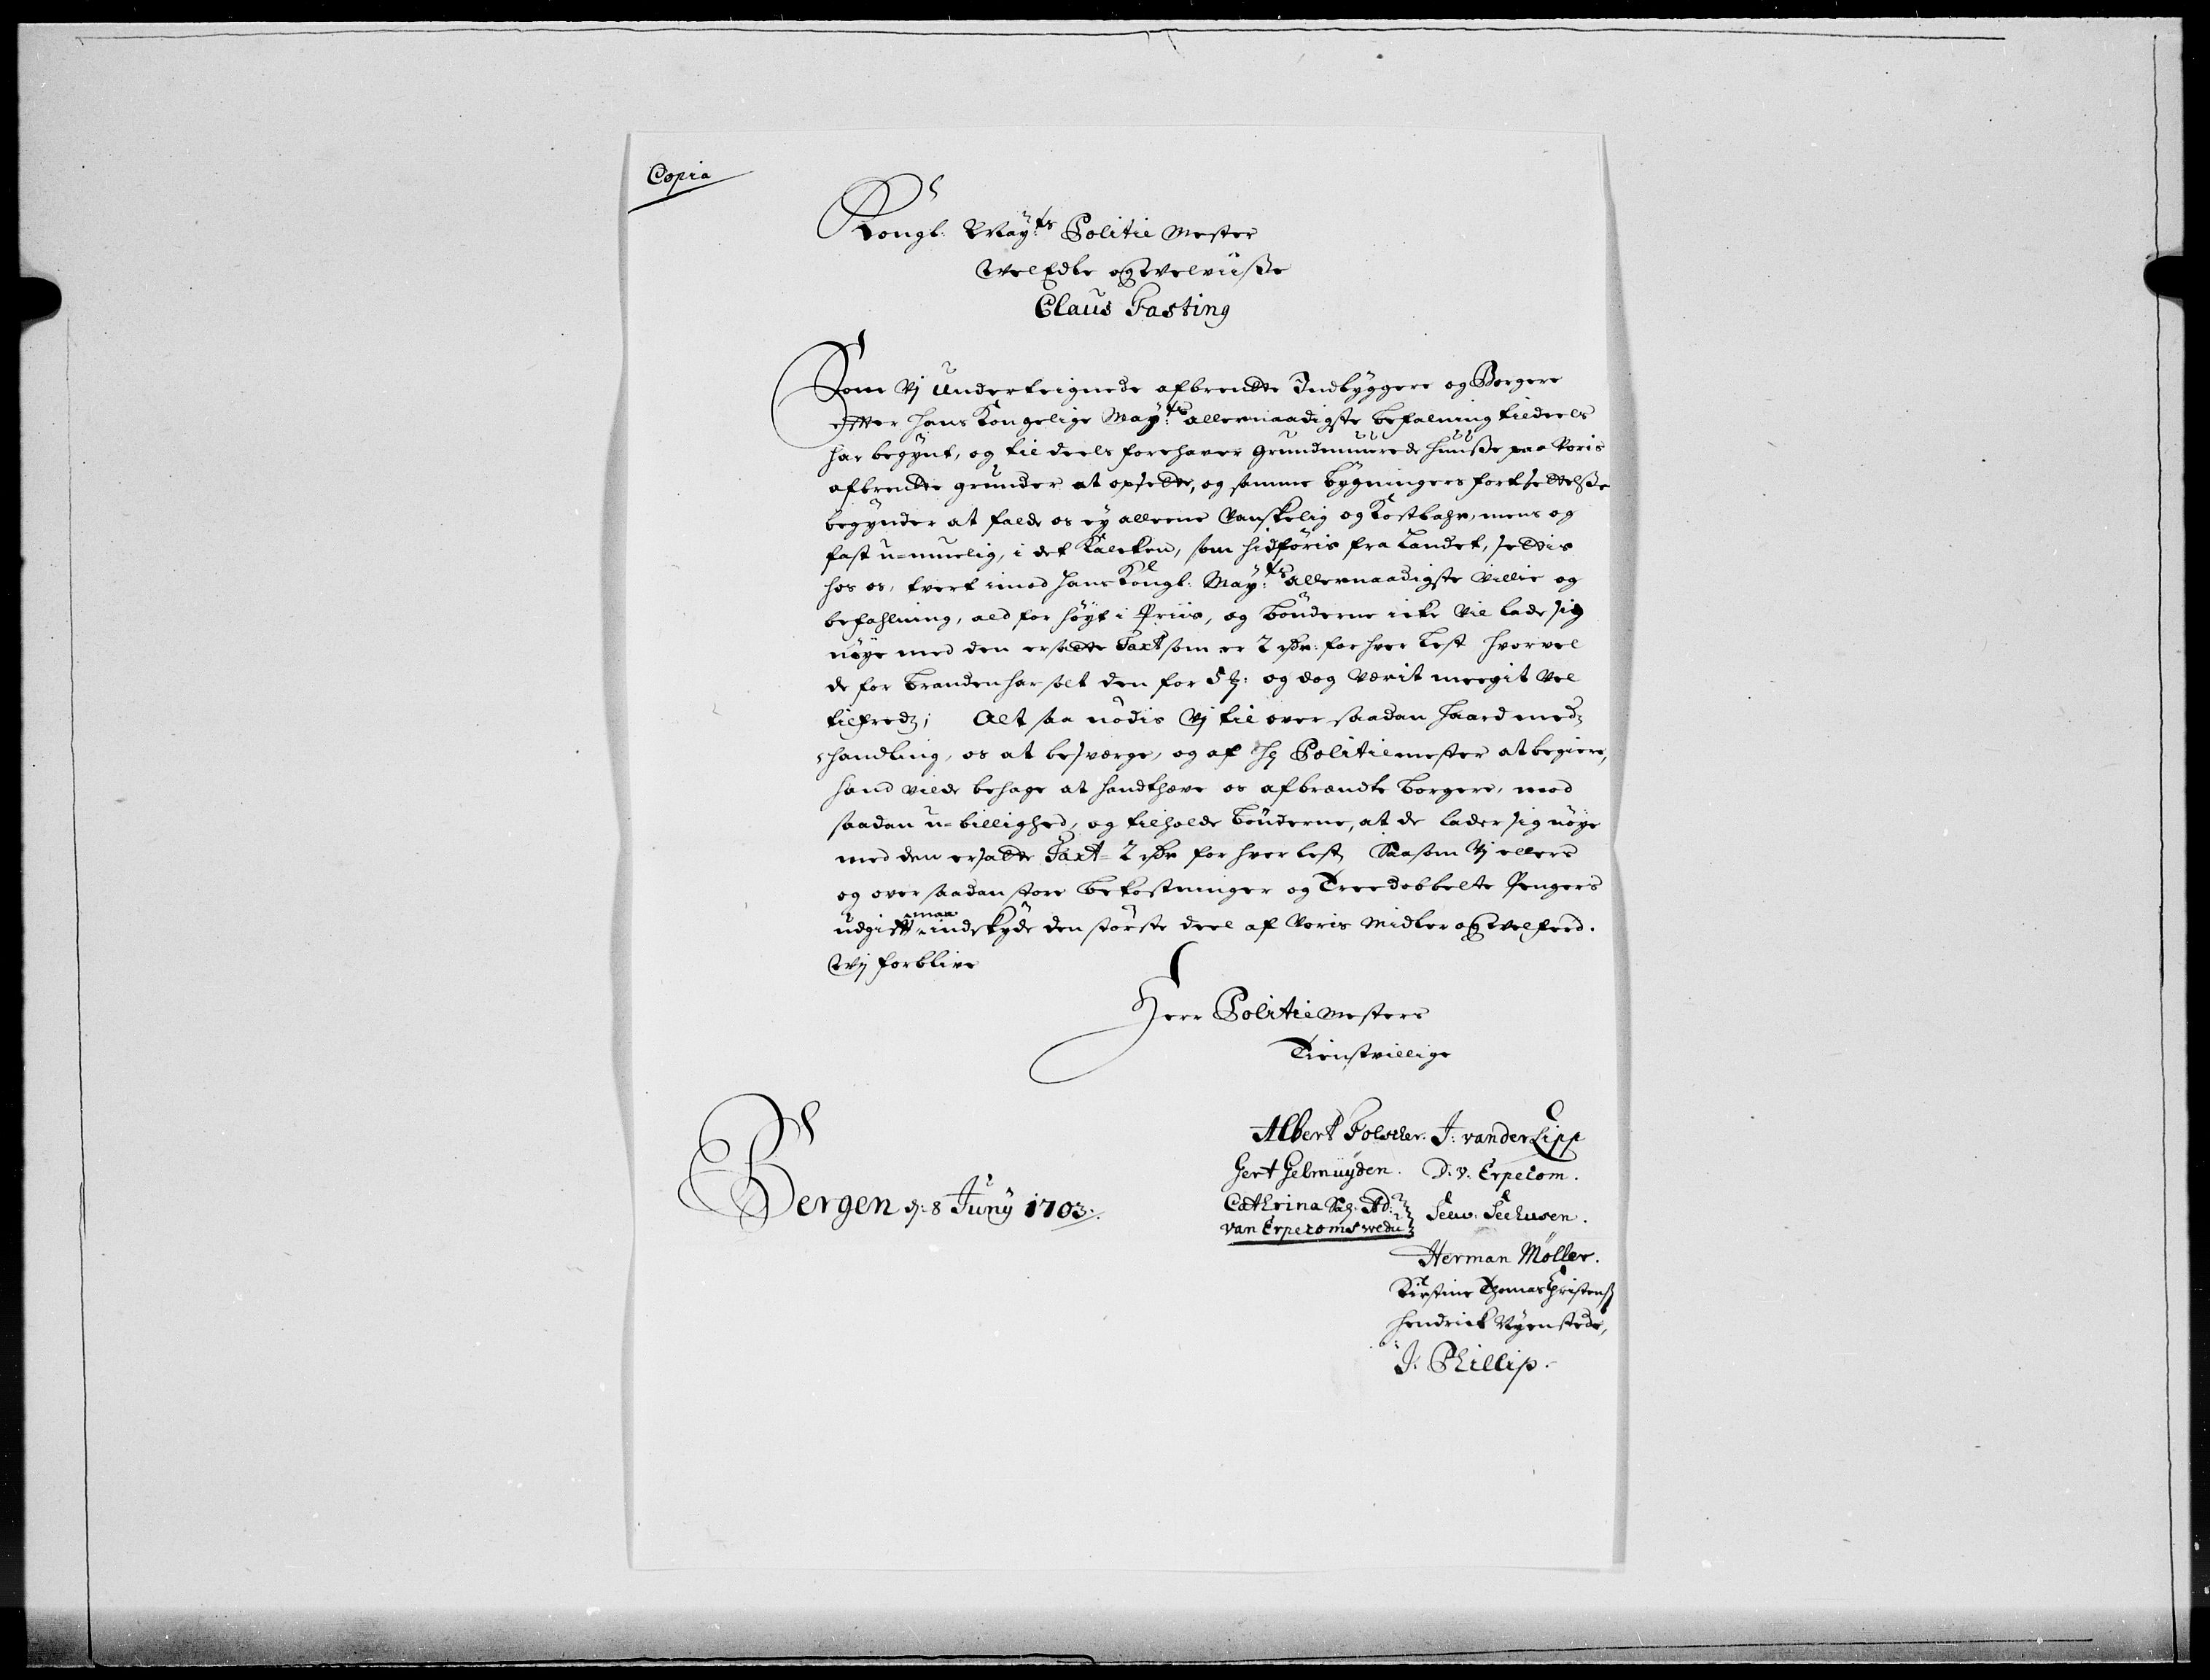 Copia
Kongl: May:ts Politie Mester
WelEdle og Welviisse
Claus Fasting
Som Vj Underteignede afbrendte Indbyggere og Borgere
efter Hans Kongelige May:ts allernaadigste befalning tildeels
har begynt, og til deels forehaver Grundmuurede Huusse paa Voris
afbrendte grunder at opsette, og samme bygningers fortsettelsse
begynder at falde os ey alleene Vanskelig og Kostbahr, mens og
fast u-muelig, i det Kalcken, som hidføris fra Landet, settis
hos os, tvert imod Hans Kongl: May:ts allernaadigste Villie og
befahlning, ald for høyt i Priis, og bønderne icke Vil lade sig
nøye med den ersatte Taxt som er 2 rdr: for hver Lest hvorvel
de for branden har solt den for 5 ß: og dog værit meegit Vel
tilfredz; Alt saa nødis Vj til over saadan haard med-
handling, os at besverge, og af Hr Politiemester at begiere,
hand vilde behage at handthæve os afbrændte borgere, mod
saadan u-billighed, og tilholde bønderne, at de lader sig nøye
med den ersatte Taxt 2 rdr for hver lest, Saasom Vj ellers
og over saadan store bekostninger og Treedobbelte Pengers
udgift maa indskyde den største deel af Voris Midler og Welferd.
Wij forblive
Herr Politie Mesters
Tienstvillige
Bergen d: 8 Juny 1703.
Albert Folscher. J: van der Lipp
Gert Gelmuyden. D. v. Erpecom.
Cathrina Sal. Ad:
van Erpecoms wedu
Seuv. Seehusen.
Herman Möller.
Kirstine Thomas Christens
Hendrick Nyenstede,
J. Phillip.